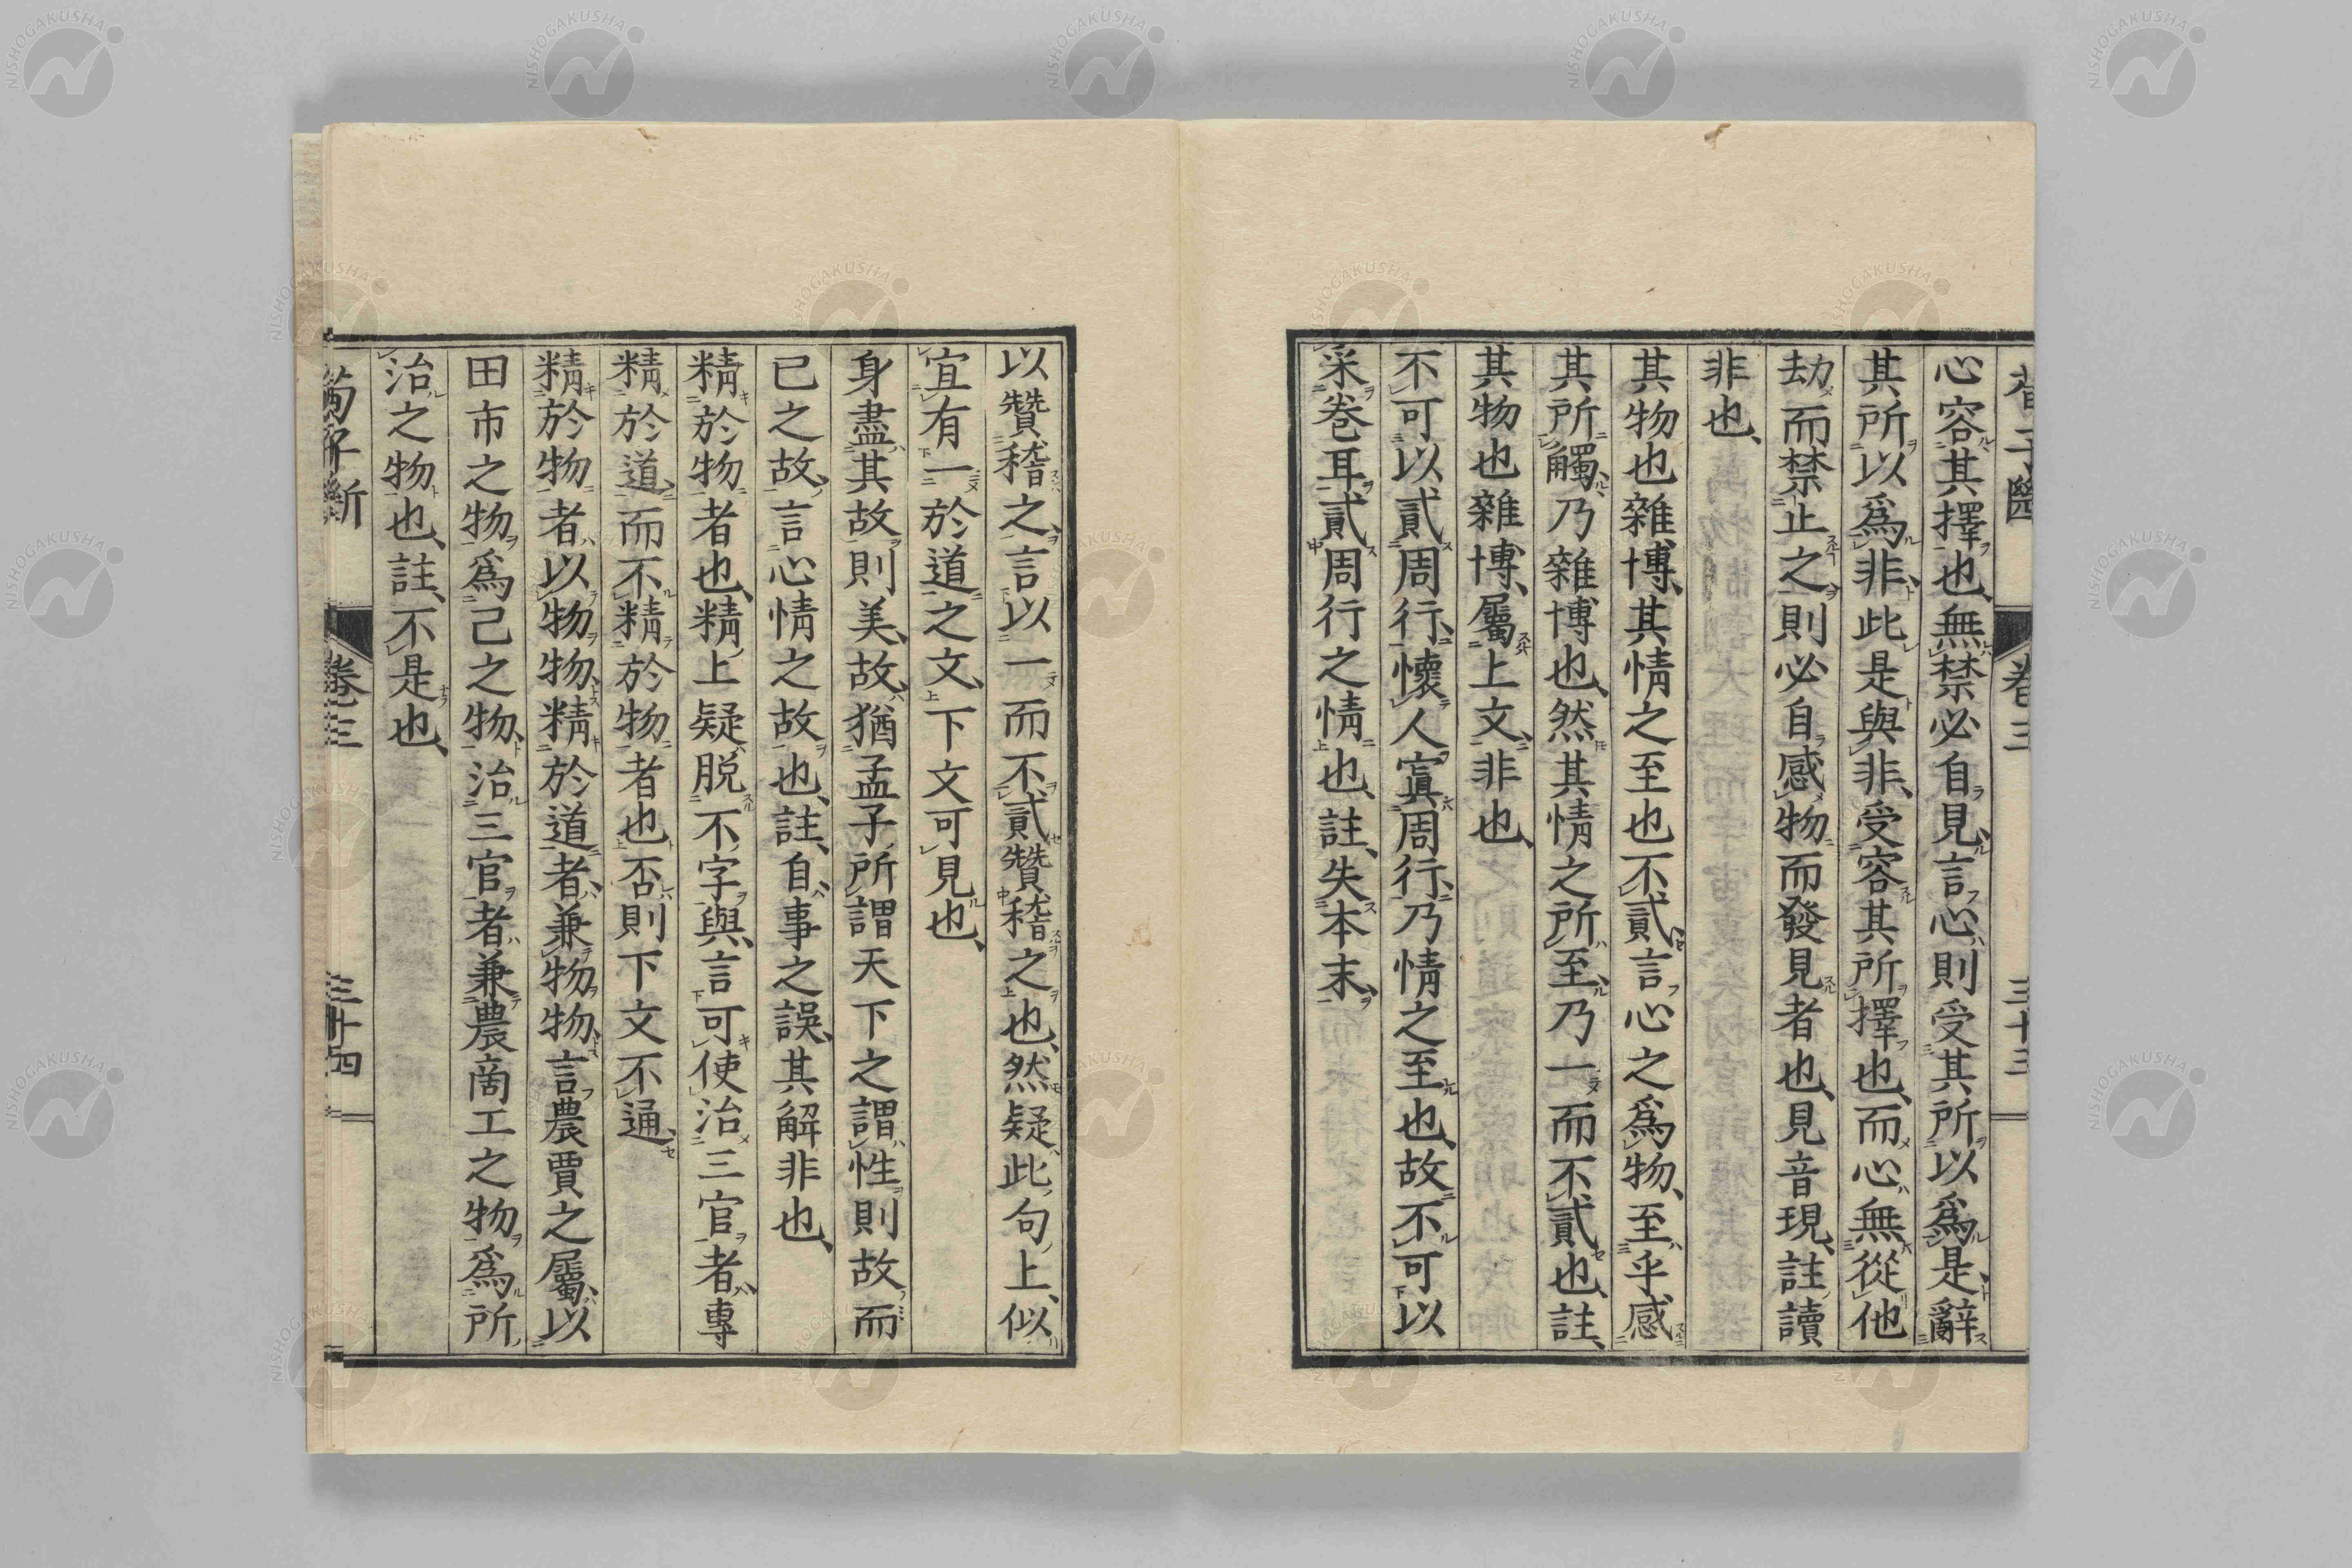 心容其擇也、無禁必自見、言心則受其所以爲是、辭
其所以爲非、非此是與非、受容其所擇也、而心無從他
劫而禁止之、則必自感物而發見者也、見音現、註讀
非也、
其物也雜博、其情之至也不貳、言心之爲物、至乎感
其所觸、乃雜博也、然其情之所至、乃一而不貳也、註、
其物也雜博、屬上文、非也、
不可以貳周行、懷人寘周行、乃情之至也、故不可以
采卷耳貳周行之情也、註、失本末、
荀子斷 卷三 三十三
以贊稽之、言以一而不貳贊稽之也、然疑此句上、似
宜有一於道之文、下文可見也、
身盡其故則美、故猶孟子所謂天下之謂性則故而
已之故、言心情之故也、註、自事之誤、其解非也、
精於物者也、精上疑脱不字與、言可使治三官者、專
精於道而不精於物者也、否則下文不通、
精於物者以物物、精於道者、兼物物、言農賈之屬、以
田市之物爲己之物、治三官者兼農啇工之物爲所
治之物也、註、不是也、
荀子斷 卷三 三十四
NISHOGAKUSHA